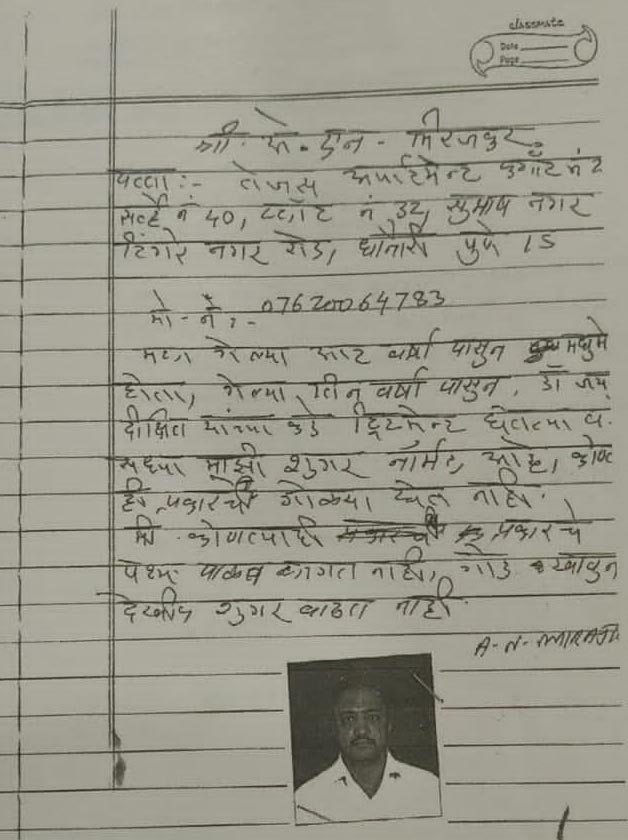 classmate
Date
Page
श्री. ए. एन. मिरजकर.
पत्ता :- तेजस अपार्टमेन्ट फ्लॅट नं 2
सर्व्हे नं 40, प्लॉट नं 32, सुभाष नगर
टिंगरे नगर रोड, धानोरी पुणे 15
मो - नं :- 07620064783
मला गेल्या आठ वर्षा पासुन मधुमे
होता, गेल्या तिन वर्षा पासुन, डॉ
दीक्षित यांच्या कडे ट्रिटमेन्ट घेतल्या व.
सध्या माझी शुगर नॉर्मल आहे, कोण
ही प्रकारची गोळ्या घेत नाही.
मी कोणत्याही प्रकारचे
पथ्य पाळावं लागत नाही, गोड खावुन
देखील शुगर वाढत नाही.
A-N-